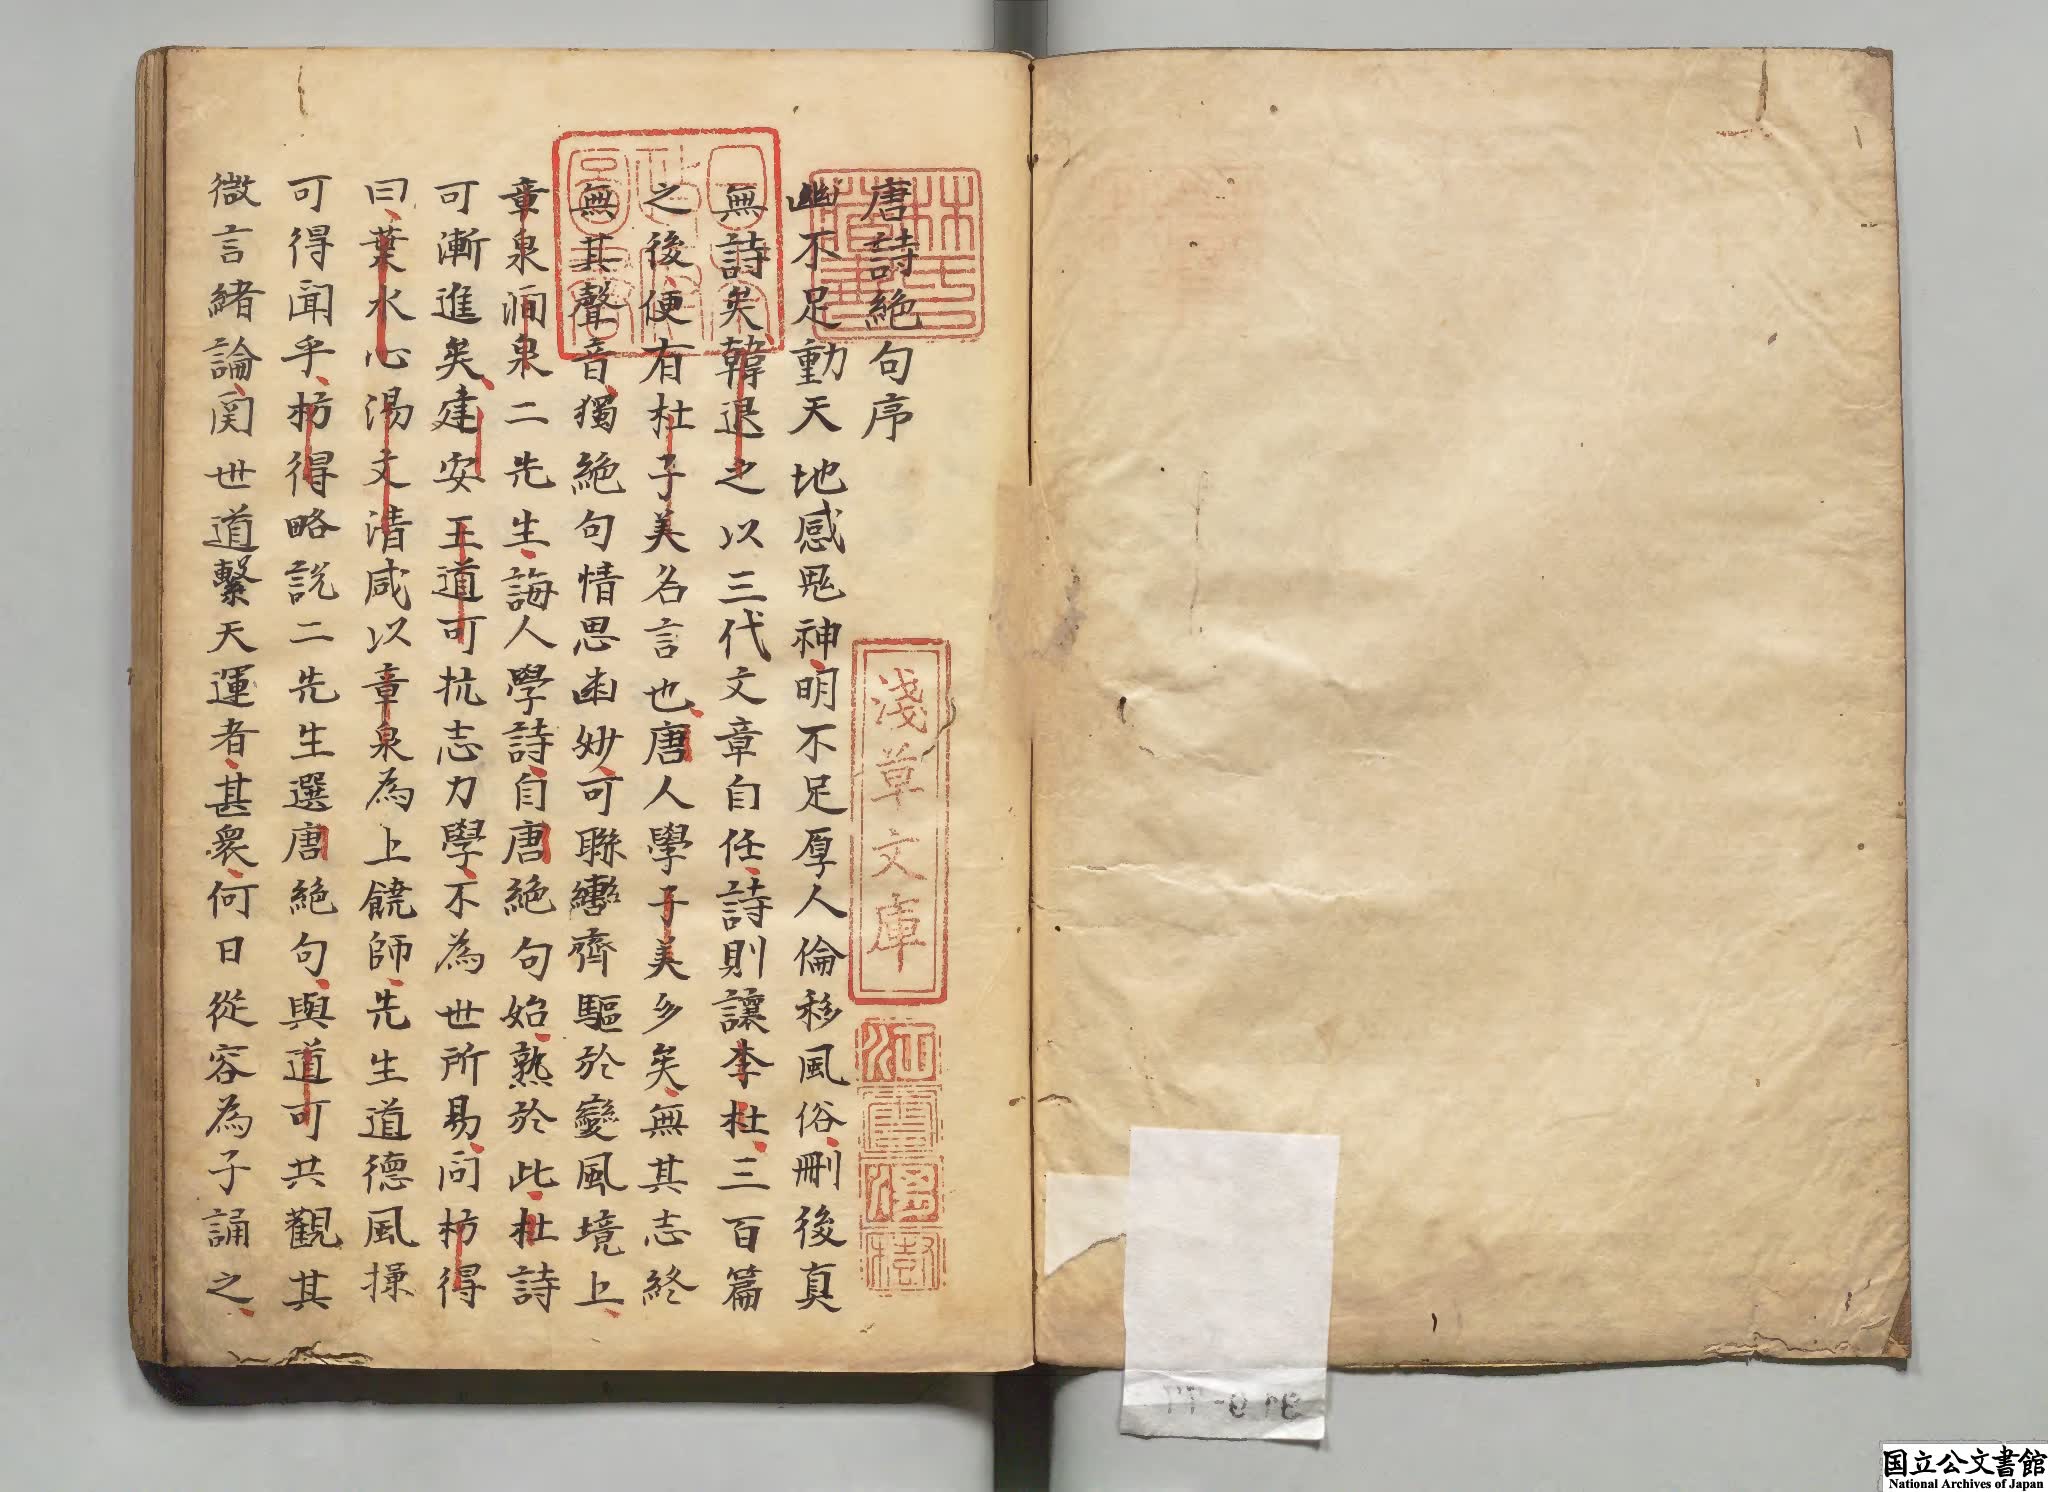 唐詩絶句序
幽不足動天地感鬼神明不足厚人倫移風俗刪後真
無詩矣韓退之以三代文章自任詩則讓李杜三百篇
之後便有杜子美名言也唐人學子美多矣無其志終
無其聲音獨絶句情思幽妙可聯轡齊驅於變風境上
章泉澗泉二先生誨人學詩自唐絶句始熟於此杜詩
可漸進矣建安王道可抗志力學不為世所易問枋得
曰葉水心湯文清咸以章泉為上饒師先生道德風操
可得聞乎枋得略説二先生選唐絶句與道可共觀其
微言緒論関世道繫天運者甚衆何日從容為子誦之
林氏藏書
日本政府圖書
淺草文庫
江雲渭樹
国立公文書館
National Archives of Japan